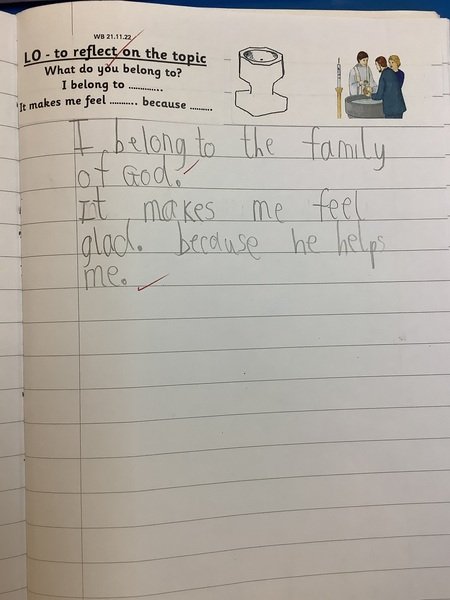 WB 21.11.22
LO - to reflect on the topic
What do you belong to?
I belong to .............
It makes me feel .......... because ........
I belong to the family
of God.
It makes me feel
glad. because he helps
me.